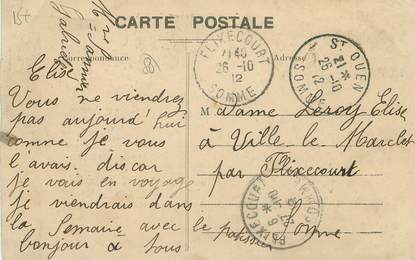 15t
CARTE POSTALE
Correspondance
Adresse
Elise
Vous ne viendrez
pas aujourd'hui
comme je vous
l'avais dis car
je vais en voyage
je viendrais dans
la Semaine avec le
bonjour a tous
Madame Leroy Elise
à Ville-le-Marclet
par Flixecourt
Somme
FLIXECOURT
7 40
26 -10
12
SOMME
ST OUEN
21
26 -10
12
SOMME
FLIXECOURT